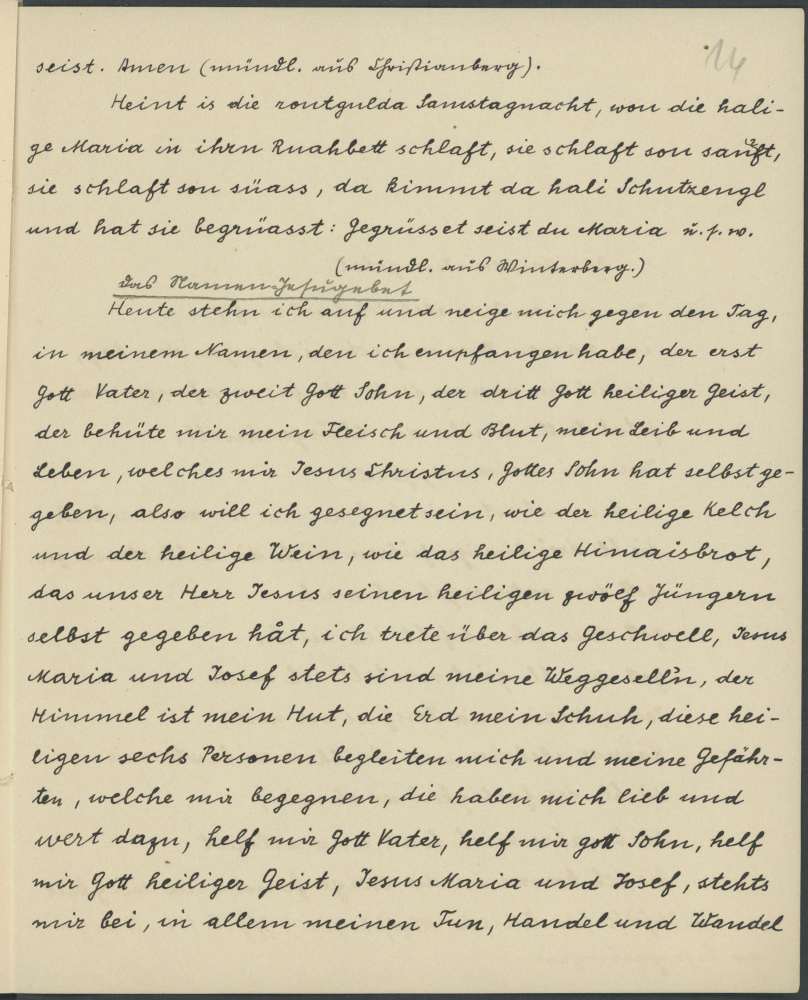 14
seist. Amen (mündl. aus Christianberg).
Heint is die rontgulda Samstagnacht, wou die hali-
ge Maria in ihrn Ruahbett schlaft, sie schlaft sou sanft,
sie schlaft sou süass, da kimmt da hali Schutzengl
und hat sie begrüasst: Gegrüsset seist du Maria u.s.w.
(mündl. aus Winterberg.)
Das Namen-Jesugebet
Heute stehn ich auf und neige mich gegen den Tag,
in meinem Namen, den ich empfangen habe, der erst
Gott Vater, der zweit Gott Sohn, der dritt Gott heiliger Geist,
der behüte mir mein Fleisch und Blut, mein Leib und
Leben, welches mir Jesus Christus, Gottes Sohn hat selbst ge-
geben, also will ich gesegnet sein, wie der heilige Kelch
und der heilige Wein, wie das heilige Himaisbrot,
das unser Herr Jesus seinen heiligen zwölf Jüngern
selbst gegeben håt, ich trete über das Geschwell, Jesus
Maria und Josef stets sind meine Weggesell'n, der
Himmel ist mein Hut, die Erd mein Schuh, diese hei-
ligen sechs Personen begleiten mich und meine Gefähr-
ten, welche mir begegnen, die haben mich lieb und
wert dazu, helf mir Gott Vater, helf mir gott Sohn, helf
mir Gott heiliger Geist, Jesus Maria und Josef, stehts
mir bei, in allem meinen Tun, Handel und Wandel